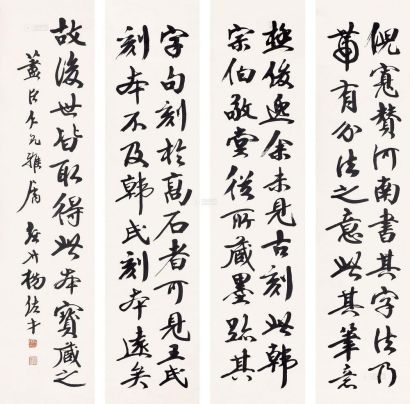 倪寬贊河南書其字法乃
帶有分法之意此其筆意
極俊逸余未見古刻此韓
宗伯敬堂從所藏墨跡其
字句刻於高石者可見王氏
刻本不及韓氏刻本遠矣
故後世皆取得此本寶藏之
蓋臣 仁兄雅屬